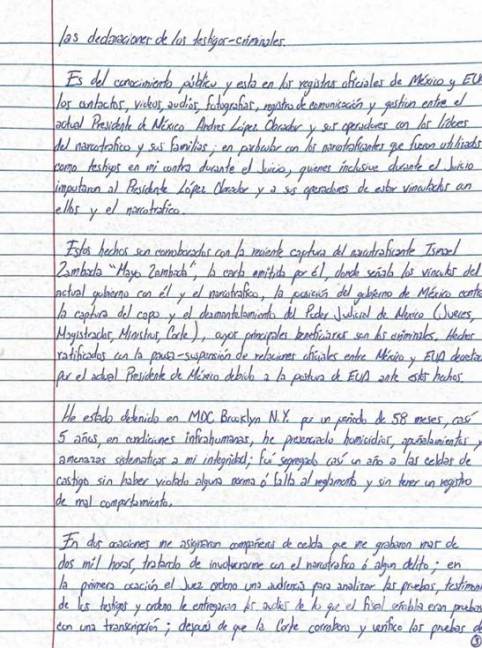 las declaraciones de los testigos-criminales.
Es del conocimiento público y esta en los registros oficiales de México y EUA
los contactos, videos, audios, fotografias, registro de comunicación y gestion entre el
actual Presidente de México Andres López Obrador y sus operadores con los líderes
del narcotrafico y sus familias; en particular con los narcotraficantes que fueron utilizados
como testigos en mi contra durante el Juicio, quienes inclusive durante el Juicio
imputaron al Presidente López Obrador y a sus operadores de estar vinculados con
ellos y el narcotrafico.
Estos hechos son corroborados con la reciente captura del narcotraficante Ismael
Zambada "Mayo Zambada", la carta emitida por él, donde señala los vinculos del
actual gobierno con él y el narcotrafico, la posición del gobierno de México contra
la captura del capo y el desmantelamiento del Poder Judicial de México (Jueces,
Magistrados, Ministros, Corte), cuyos principales beneficiarios son los criminales. Hechos
ratificados con la pausa-suspensión de relaciones oficiales entre México y EUA decretada
por el actual Presidente de México debido a la postura de EUA ante estos hechos.
He estado detenido en MDC Brooklyn N.Y. por un periodo de 58 meses, casi
5 años, en condiciones infrahumanas, he presenciado homicidios, apuñalamientos y
amenazas sistematicas a mi integridad; fui segregado casi un año a las celdas de
castigo sin haber violado alguna norma ó falta al reglamento y sin tener un registro
de mal comportamiento.
En dos ocasiones me asignaron compañeros de celda que me grabaron mas de
dos mil horas, tratando de involucrarme con el narcotrafico ó algun delito; en
la primera ocasión el Juez ordeno una audiencia para analizar las pruebas, testimoni
de los testigos y ordeno le entregaran los audios de lo que el fiscal señalaba eran pruebas
con una transcripción; después de que la Corte corroboro y verifico las pruebas de